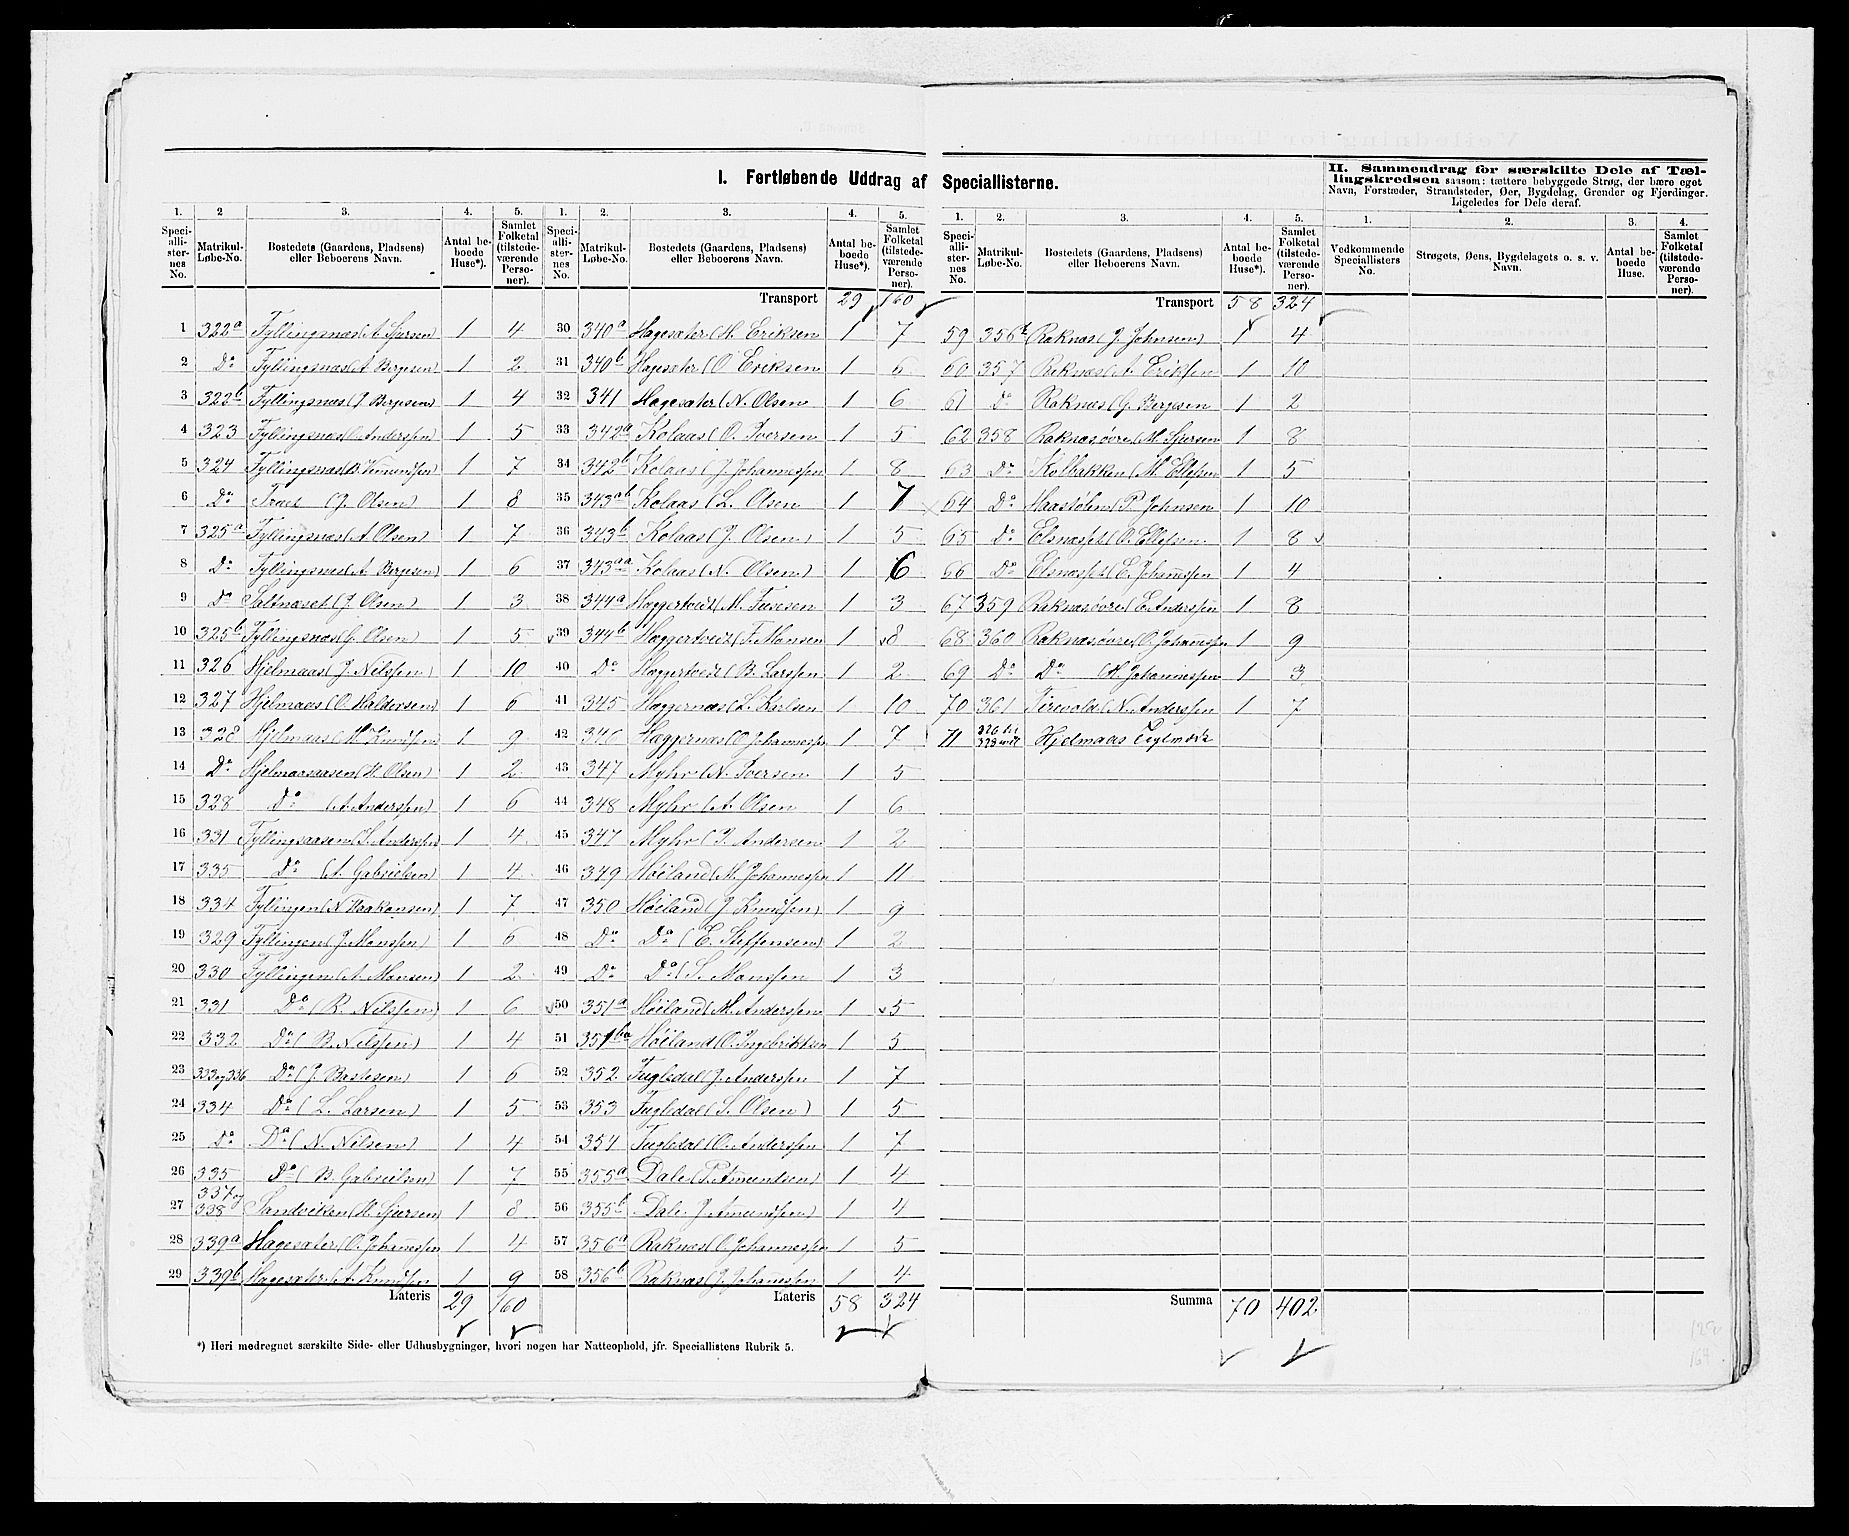 I. Fortløbende Uddrag af Speciallisterne.
II. Sammendrag for særskilte Dele af Tællingskredsen saasom: tættere bebyggede Strøg, der bære eget
Navn, Forstæder, Strandsteder, Øer, Bygdelag, Grender og Fjerdinger.
Ligeledes for Dele deraf.
1. 2 3. 4. 5.
Speciallisternes No. Matrikul-Løbe-No. Bostedets (Gaardens, Pladsens) eller Beboerens Navn. Antal beboede Huse*). Samlet Folketal (tilstedeværende Personer).
1 322a Fyllingsnæs (A. Sjursen) 1 4
2 Do Fyllingsnæs (A. Bergesen) 1 2
3 322b Fyllingsnæs (J. Bergesen) 1 4
4 323 Fyllingsnæs (O. Anderssen) 1 5
5 324 Fyllingsnæs (B. Vemundsen) 1 7
6 Do Træet (J. Olsen) 1 8
7 325a Fyllingsnæs (A. Olsen) 1 7
8 Do Fyllingsnæs (A. Bergesen) 1 6
9 Do Saltnæset (J. Olsen) 1 3
10 325b Fyllingsnæs (G. Olsen) 1 5
11 326 Hjelmaas (J. Nilssen) 1 10
12 327 Hjelmaas (O. Haldorsen) 1 6
13 328 Hjelmaas (M. Knudsen) 1 9
14 Do Hjelmaasaasen (H. Olsen) 1 2
15 328 Do (A. Anderssen) 1 6
16 331 Fyllingsaasen (S. Anderssen) 1 4
17 335 Do (A. Gabrielsen) 1 4
18 334 Fyllingen (N. Haakonsen) 1 7
19 329 Fyllingen (J. Monssen) 1 6
20 330 Fyllingen (A. Monsen) 1 2
21 331 Do (R. Nilssen) 1 6
22 332 Do (B. Nilssen) 1 4
23 333 og 336 Do (J. Bastesen) 1 6
24 334 Do (L. Larsen) 1 5
25 Do Do (N. Nilsen) 1 4
26 335 Do (B. Gabrielsen) 1 7
27 337 og 338 Sandviken (H. Sjursen) 1 8
28 339a Hagesæter (O. Johannessen 1 4
29 339b Hagesæter (A. Knudsen 1 9
Lateris 29 160
*) Heri medregnet særskilte Side- eller Udhusbygninger, hvori nogen har Natteophold, jfr. Speciallistens Rubrik 5.
1. 2. 3. 4. 5.
Speciallisternes No. Matrikul-Løbe-No. Bostedets (Gaardens, Pladsens) eller Beboerens Navn. Antal beboede Huse*). Samlet Folketal (tilstedeværende Personer).
Transport 29 160
30 340a Hagesæter (M. Eriksen 1 7
31 340b Hagesæter (O. Eriksen 1 6
32 341 Hagesæter (N. Olsen 1 6
33 342a Kolaas (O. Iversen 1 5
34 342b Kolaas (J. Johannessen 1 8
35 343ab Kolaas (L. Olsen 1 7
36 343b Kolaas (J. Olsen) 1 5
37 343aa Kolaas (N. Olsen) 1 6
38 344a Hæggertveit (M. 1 3
39 344b Hæggertveit (F. Monsen 1 8
40 Do Hæggertveit (B. Larssen 1 2
41 345 Hæggernæs (L. Karlsen 1 10
42 346 Hæggernæs (O. Johannessen 1 7
43 347 Myhr (N. Iversen 1 5
44 348 Myhr (A. Olsen 1 6
45 347 Myhr (I. Andersen 1 2
46 349 Høiland (M. Johannessen 1 11
47 350 Høiland (J. Knudsen) 1 9
48 Do Do (E. Steffensen) 1 2
49 Do Do (S. Monssen 1 3
50 351a Høiland (M. Anderssen 1 5
51 351ba Høiland (O. Ingebriktsen 1 5
52 352 Fugledal (J. Anderssen 1 7
53 353 Fugledal (S. Olsen) 1 5
54 354 Fugledal (O. Anderssen 1 7
55 355a Dale (P. Amundsen) 1 4
56 355b Dale J. Amundsen) 1 4
57 356a Raknæs (O. Johannessen 1 5
58 356b Raknæs (J. Johannessen 1 4
Lateris 58 324
1. 2. 3. 4. 5.
Speciallisternes No. Matrikul-Løbe-No. Bostedets (Gaardens, Pladsens) eller Beboerens Navn. Antal beboede Huse*). Samlet Folketal (tilstedeværende Personer).
Transport 58 324
59 356 Raknæs (J. Johnsen) 1 4
60 357 Raknæs (A. Eriksen 1 10
61 Do Raknæs (G. Bergesen 1 2
62 358 Raknæs, øvre (M. Sjursen 1 8
63 Do Kolbakken (M. Ellefsen 1 5
64 Do Haastølen (P. Johnsen 1 10
65 Do Elsnæsset (O. Ellefsen 1 8
66 Do Elsnæsset (E. Johannessen 1 4
67 359 Raknæs øvre (E. Anderssen 1 8
68 360 Raknæs, øvre (O. Johannessen 1 9
69 Do Do (H. Johannessen 1 3
70 361 Tirevold (N. Anderssen 1 7
71 326 328 Hjelmaas Teglværk
Summa 70 402
1. 2. 3. 4.
Vedkommende Speciallisters No. Strøgets, Øens, Bygdelagets o. s. v. Navn. Antal beboede Huse. Samlet Folketal (tilstedeværende Personer).